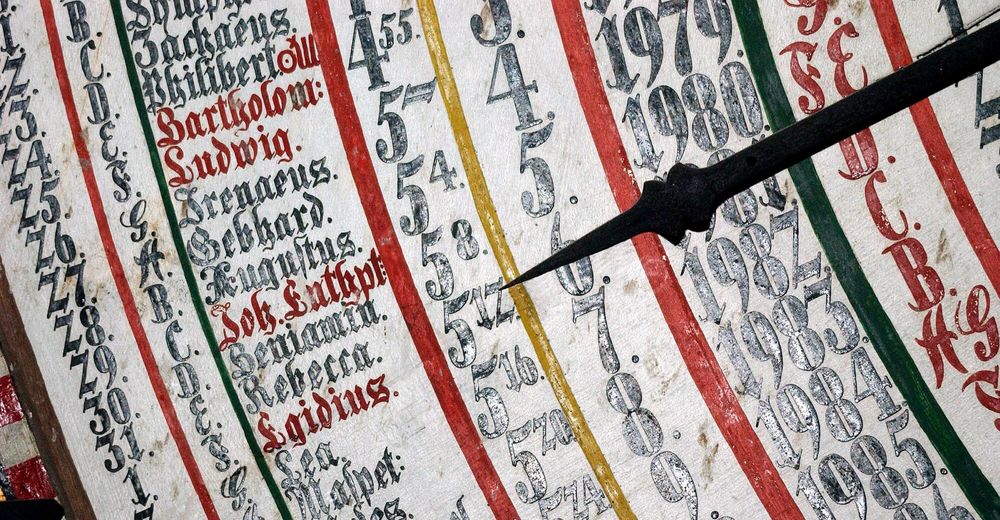 22.
23.
24.
25.
26.
27.
28.
29.
30.
31.
1.
B.
C.
D.
E.
F.
G.
A.
B.
C.
D.
E.
F.
G.
Zachaeus
Philibert
Bartholom:
Ludwig.
Irenaeus.
Gebhard.
Augustus.
Joh. Enthpt
Benjamin.
Rebecca.
Egidius.
Lea.
4 55.
5
5 4.
5 8.
5 12
5 16.
5 20
5 24
3.
4.
5.
6.
7.
8.
9.
1979.
1980.
1982
1983.
1984
1985
G.
F E.
D
C.
B.
A G.